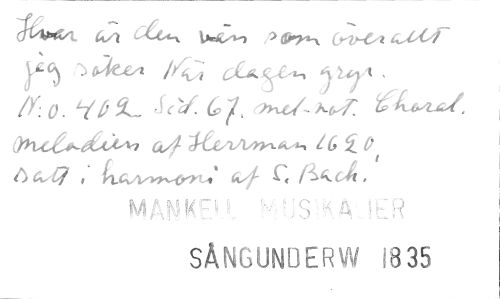 Hvar är den vän som överallt
jag söker När dagen gryr.
N:o. 402 Sid. 67. mel-not. Choral.
melodien af Herrman 1620,
satt i harmoni af S. Bach.
MANKELL MUSIKALIER
SÅNGUNDERW 1835